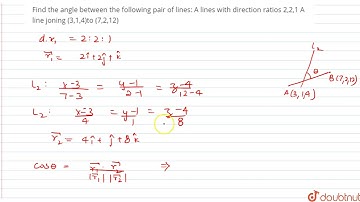 Find the angle between the following pair of lines: A lines with direction ratios 2,2,1 A
line joining (3,1,4)to (7,2,12)
d.r₁ = 2:2:1
r⃗₁ = 2î+2ĵ+k̂
L₂: x-3/7-3 = y-1/2-1 = z-4/12-4
L₂: x-3/4 = y-1/1 = z-4/8
r⃗₂ = 4î+ĵ+8k̂
cosθ = r⃗₁·r⃗₂/|r⃗₁||r⃗₂| ⇒
L₂
θ
A(3,1,4)
B(7,2,12)
doubtnut